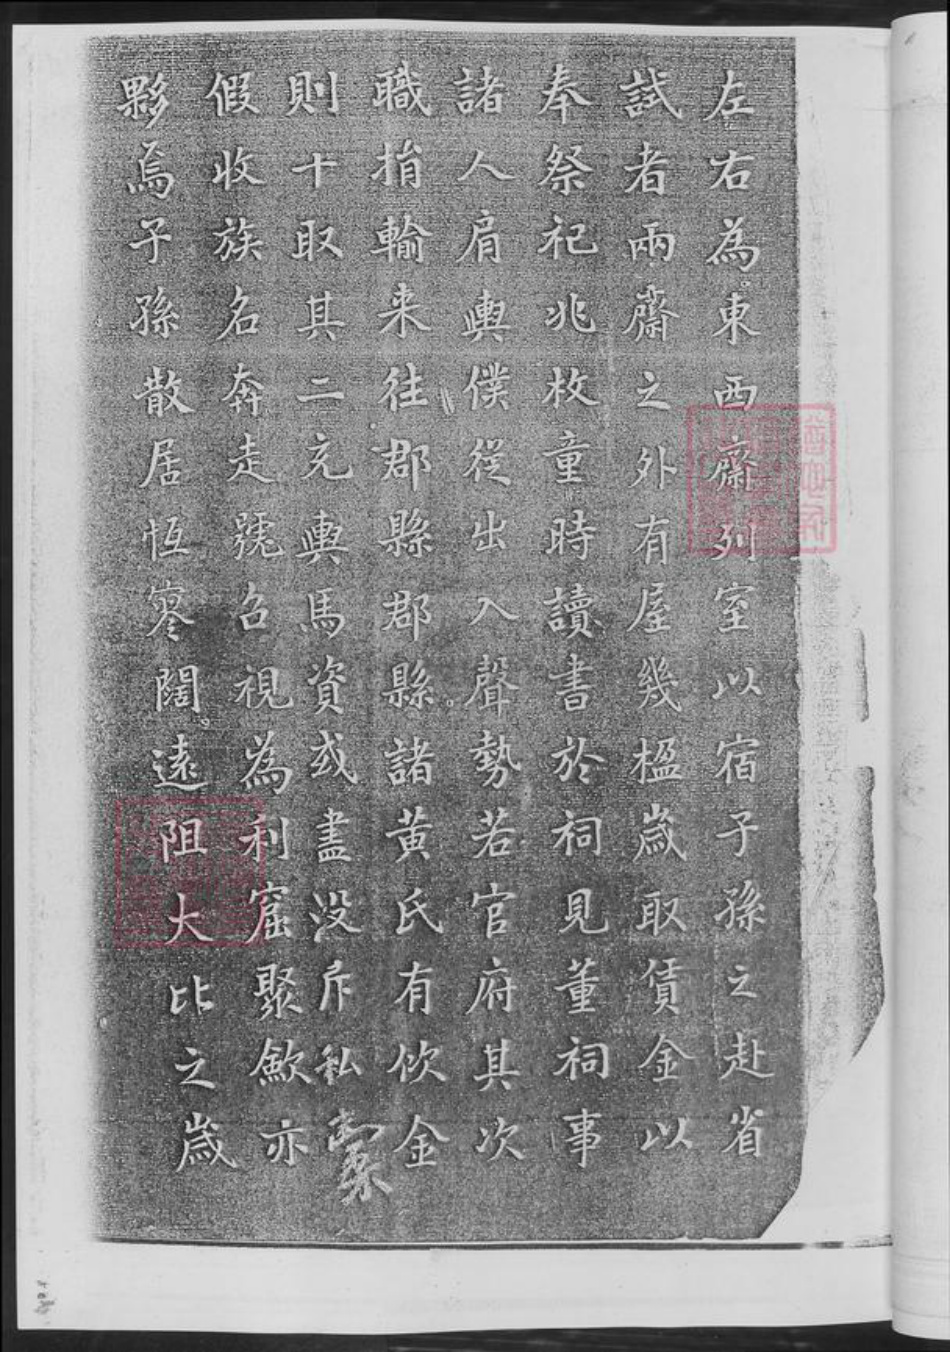 左右為東西齋列室以宿子孫之赴省
試者兩齋之外有屋幾楹歲取賃金以
奉祭祀兆枚童時讀書於祠見董祠事
諸人肩輿僕從出入聲勢若官府其次
職捐輸来往郡縣郡縣諸黄氏有飲金
則十取其二充輿馬資或盡没斥私橐
假收族名奔走號召視為利窟聚歛亦
夥焉子孫散居恆寥闊遠阻大比之歲